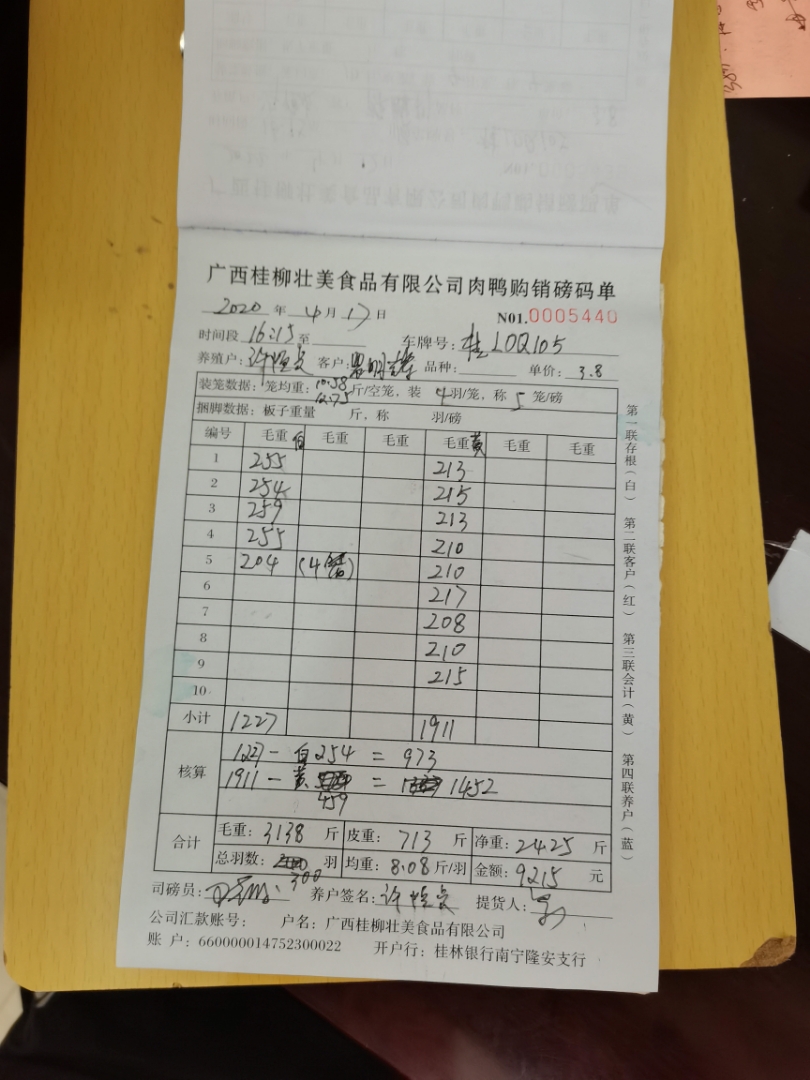 广西桂柳壮美食品有限公司肉鸭购销磅码单
2020 年 4 月 17 日 N01.0005440
时间段 16:15 至 车牌号: 桂LOQ105
养殖户: 客户: 品种: 单价: 3.8
装笼数据: 笼均重: 10.58 12.75 斤/空笼, 装 4 羽/笼, 称 5 笼/磅
捆脚数据: 板子重量 斤, 称 羽/磅
编号 毛重 白 毛重 毛重 毛重 黄 毛重 毛重
1 255 213
2 254 215
3 259 213
4 255 210
5 204 (4笼) 210
6 217
7 208
8 210
9 215
10
小计 1227 1911
核算 1227 - 白254 = 973
1911 - 黄 459 = 1452
合计 毛重: 3138 斤 皮重: 713 斤 净重: 2425 斤
总羽数: 300 羽 均重: 8.08 斤/羽 金额: 9215 元
司磅员: 养户签名: 提货人:
公司汇款账号: 户名: 广西桂柳壮美食品有限公司
账 户: 660000014752300022 开户行: 桂林银行南宁隆安支行
第一联存根(白) 第二联客户(红) 第三联会计(黄) 第四联养户(蓝)